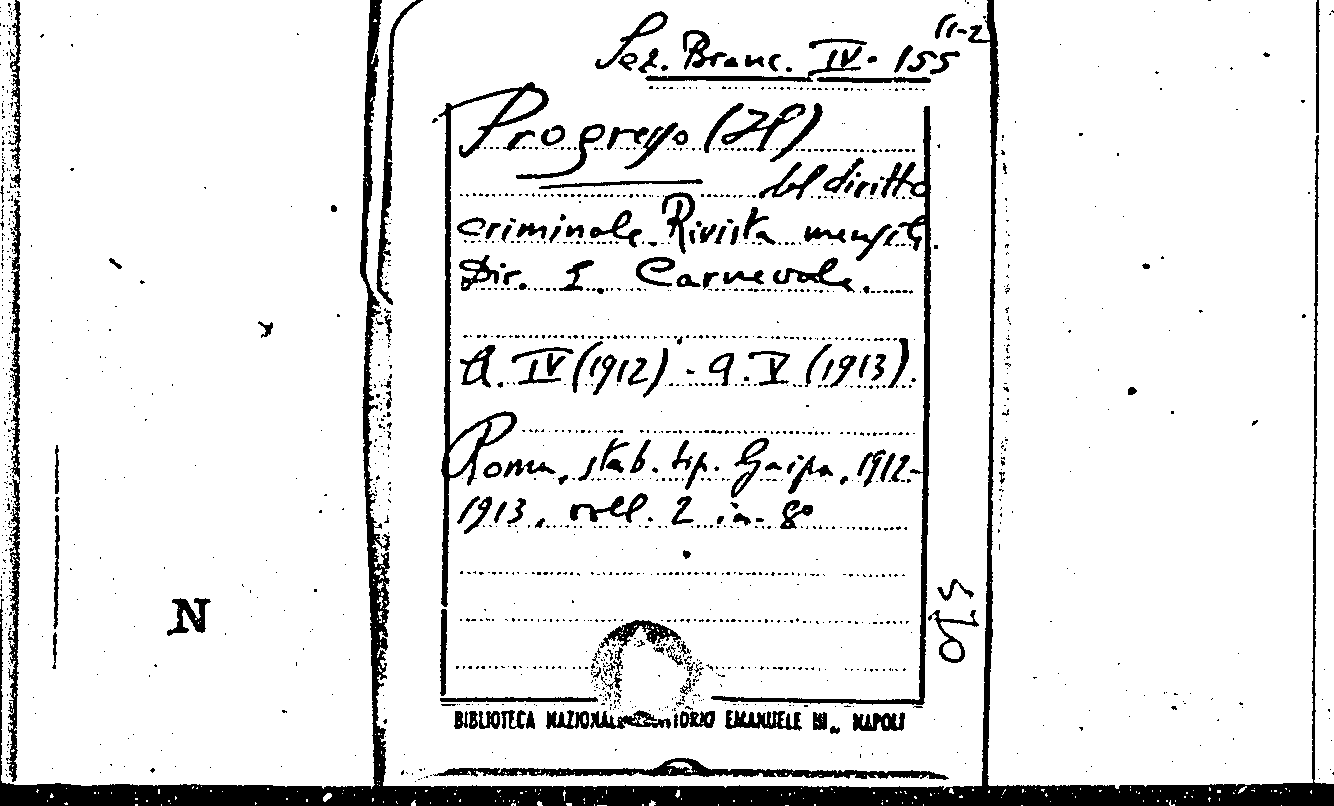 11-2
Sez. Branc. IV. 155
Progresso (Il)
del diritto
criminale. Rivista mensile.
Dir. E. Carnevale.
A. IV (1912) - a. V (1913).
Roma, stab. tip. Gaipa, 1912-
1913, voll. 2 in-8°
N
BIBLIOTECA NAZIONALE VITTORIO EMANUELE III„ NAPOLI